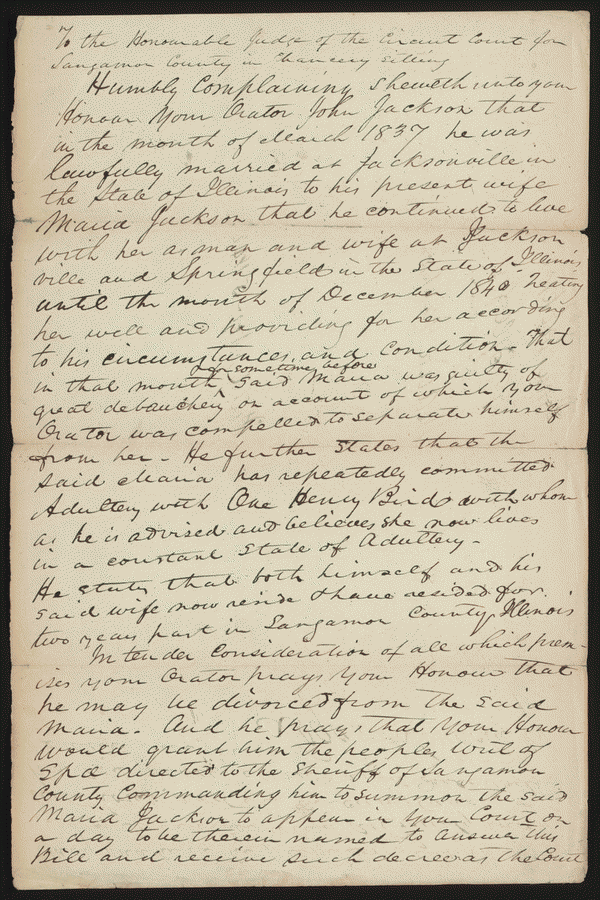 To the Honourable Judge of the Circuit Court for
Sangamon County in Chancery Sitting
Humbly Complaining Sheweth unto your
Honour Your Orator John Jackson that
in the month of March 1837 he was
lawfully married at Jacksonville in
the State of Illinois to his present wife
Maria Jackson that he continued to live
with her as man and wife at Jackson
ville and Springfield in the State of Illinois
until the month of December 1840 Treating
her well and providing for her according
to his circumstances, and Condition. That
in that month & for sometimes before said Maria was guilty of
great debauchery on account of which your
Orator was compelled to separate himself
from her - He further States that the
said Maria has repeatedly committed
Adultery with One Henry Bird with whom
as he is advised and believes she now lives
in a constant State of Adultery -
He states that both himself and his
said wife now reside & have resided for
two years past in Sangamon County Illinois
In tender Consideration of all which prem-
ises your Orator prays Your Honour that
he may be divorced from the said
Maria. And he prays that Your Honour
would grant him the peoples writ of
Spœ directed to the Sheriff of Sangamon
County Commanding him to summon the said
Maria Jackson to appear in your Court on
a day to be therein named to answer this
Bill and receive such decree as the Court